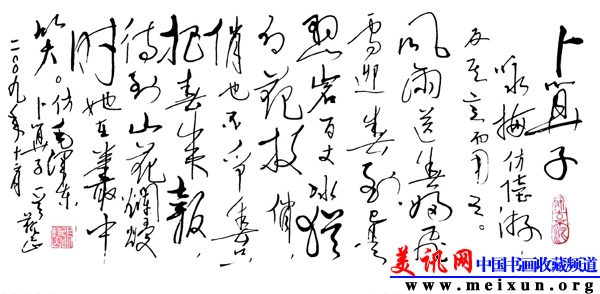 卜算子
咏梅仿陆游
反其意而用之。
风雨送春归飞
雪迎春到已是
悬岩百丈冰犹
有花枝俏，
俏也不争春只
把春来報，
待到山花爛漫
时她在叢中
笑。仿毛泽东
卜算子一首
二〇〇九年
美讯网 中国书画收藏频道
www.meixun.org